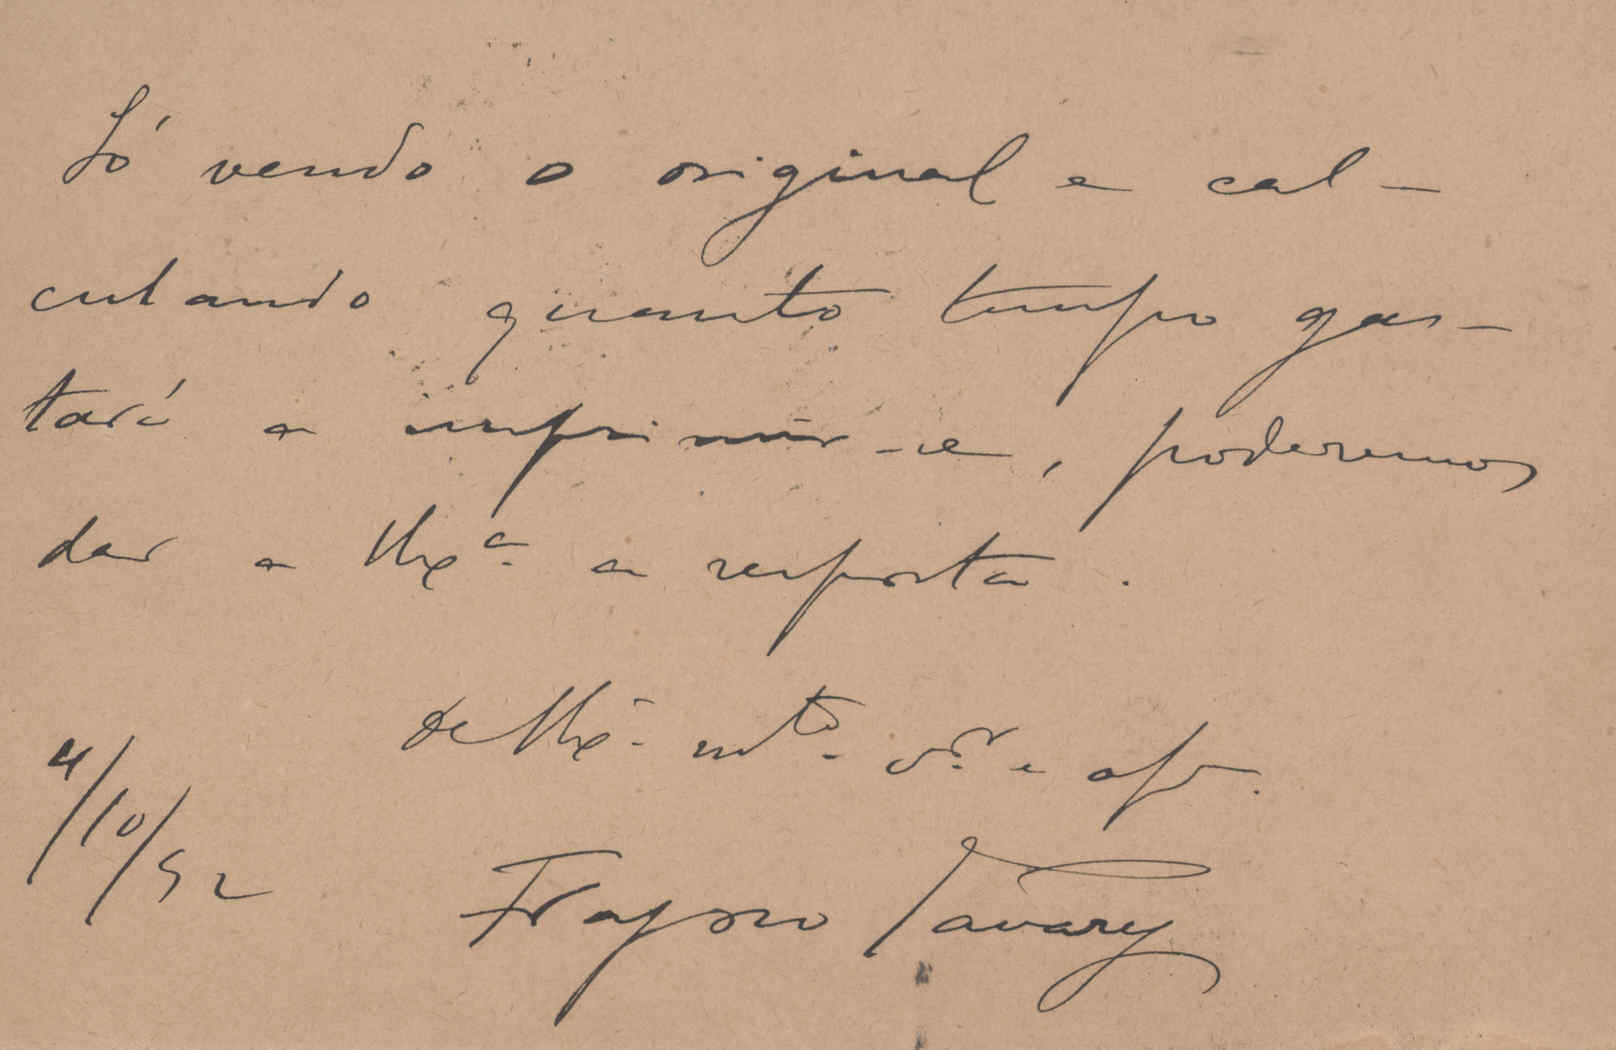 Só vendo o original e cal-
culando quanto tempo gas-
tará a imprimir-se, poderemos
dar a V. Exª a resposta.
de V. Exª mtº. vor e
4/10/92
Fragoso Tavares